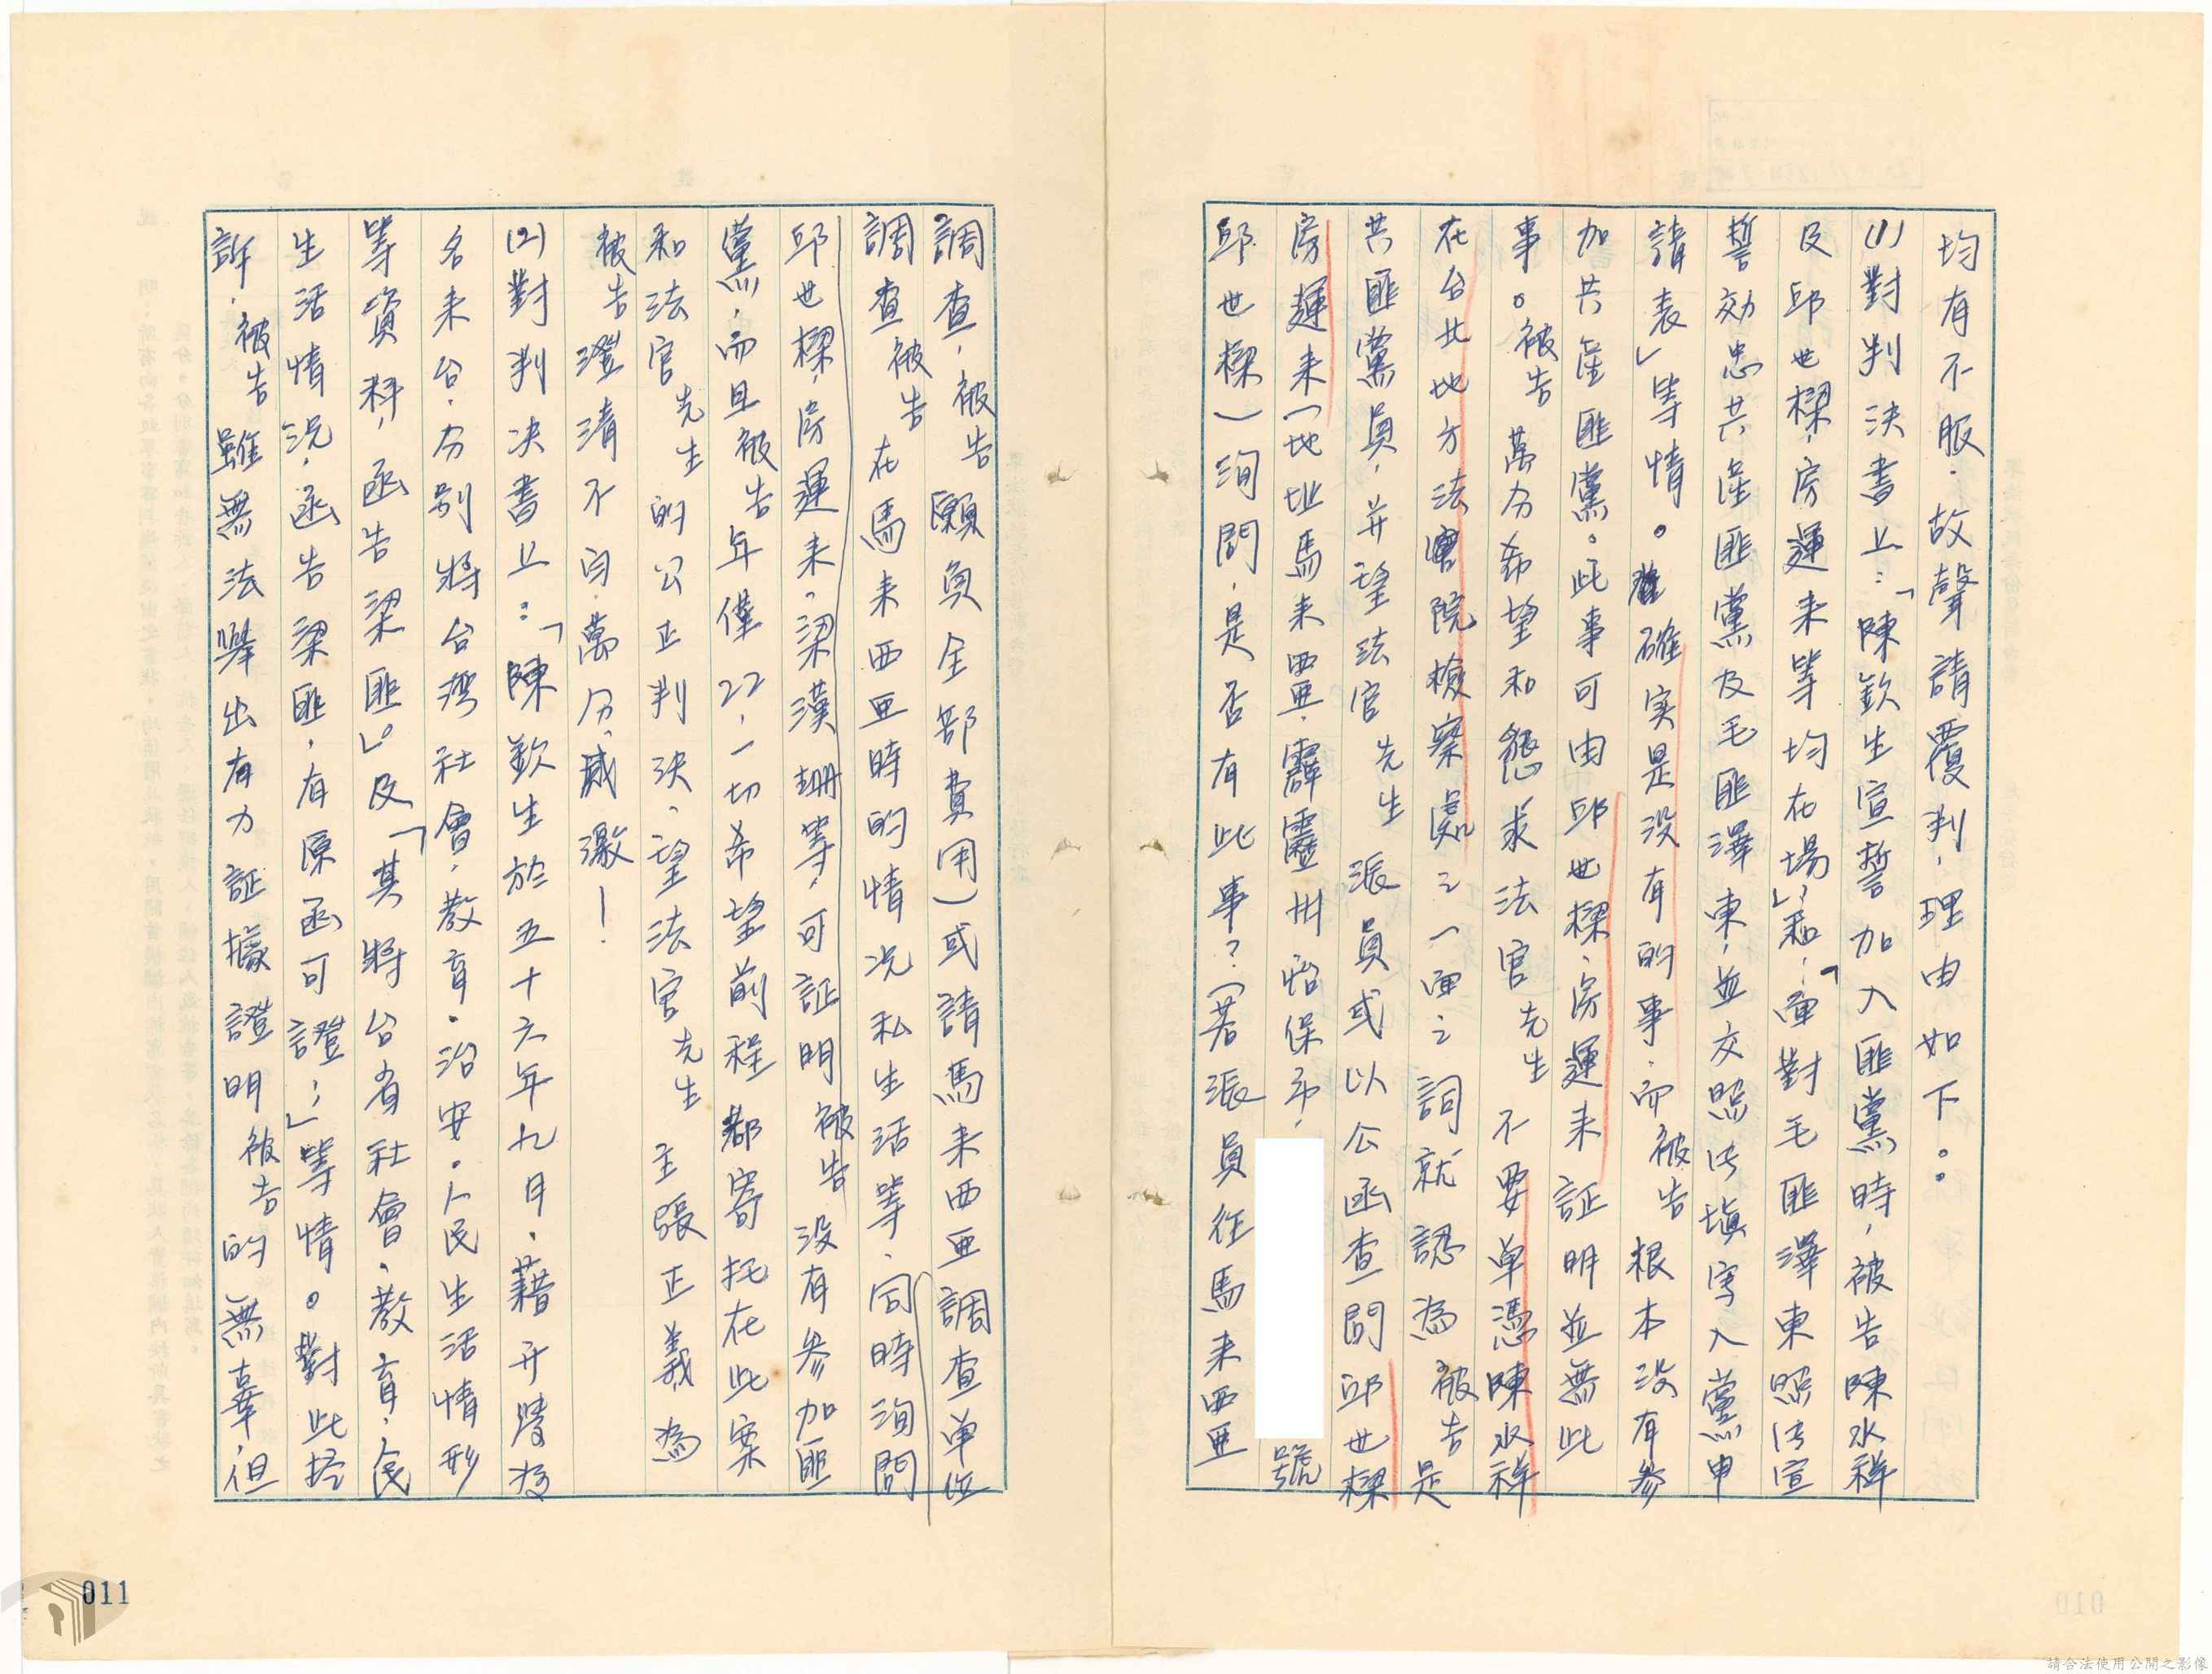 均有不服．故聲請覆判，理由如下：
(1)對判決書上：「陳欽生宣誓加入匪黨時，被告陳水祥
及邱世樑，房運來等均在場」；和：「面對毛匪澤東照片宣
誓効忠共產匪黨及毛匪澤東，並交照片填寫入黨申
請表」等情。確实是没有的事．而被告根本没有參
加共產匪黨。此事可由邱世樑、房運来証明並無此
事。被告萬分希望和懇求法官先生不要单憑陳水祥
在台北地方法院檢察處之一面之詞就認為被告是
共匪黨員，并望法官先生派員或以公函查問邱世樑
房運来（地址馬来西亜．霹靂州怡保市，號
邱世樑）洵問．是否有此事？（若派員往馬来西亜
調查，被告願負全部費用）或請馬来西亜調查单位
調查被告在馬来西亜時的情况私生活等．同時洵問
邱世樑，房運来、梁漢珊等，可証明被告没有參加匪
黨，而且被告年僅22，一切希望前程都寄托在此案
和法官先生的公正判決．望法官先生主張正義為
被告澄清不白．萬分感激！
(2)對判决書上：「陳欽生於五十六年九月，藉升學為
名来台．分别將台灣社會，教育．治安．人民生活情形
等資料，函告梁匪」。及「其將台省社會．教育，民
生活情况，函告梁匪，有原函可證…」等情。對此控
訴．被告雖無法舉出有力証據證明被告的無辜，但
011
請合法使用公開之影像